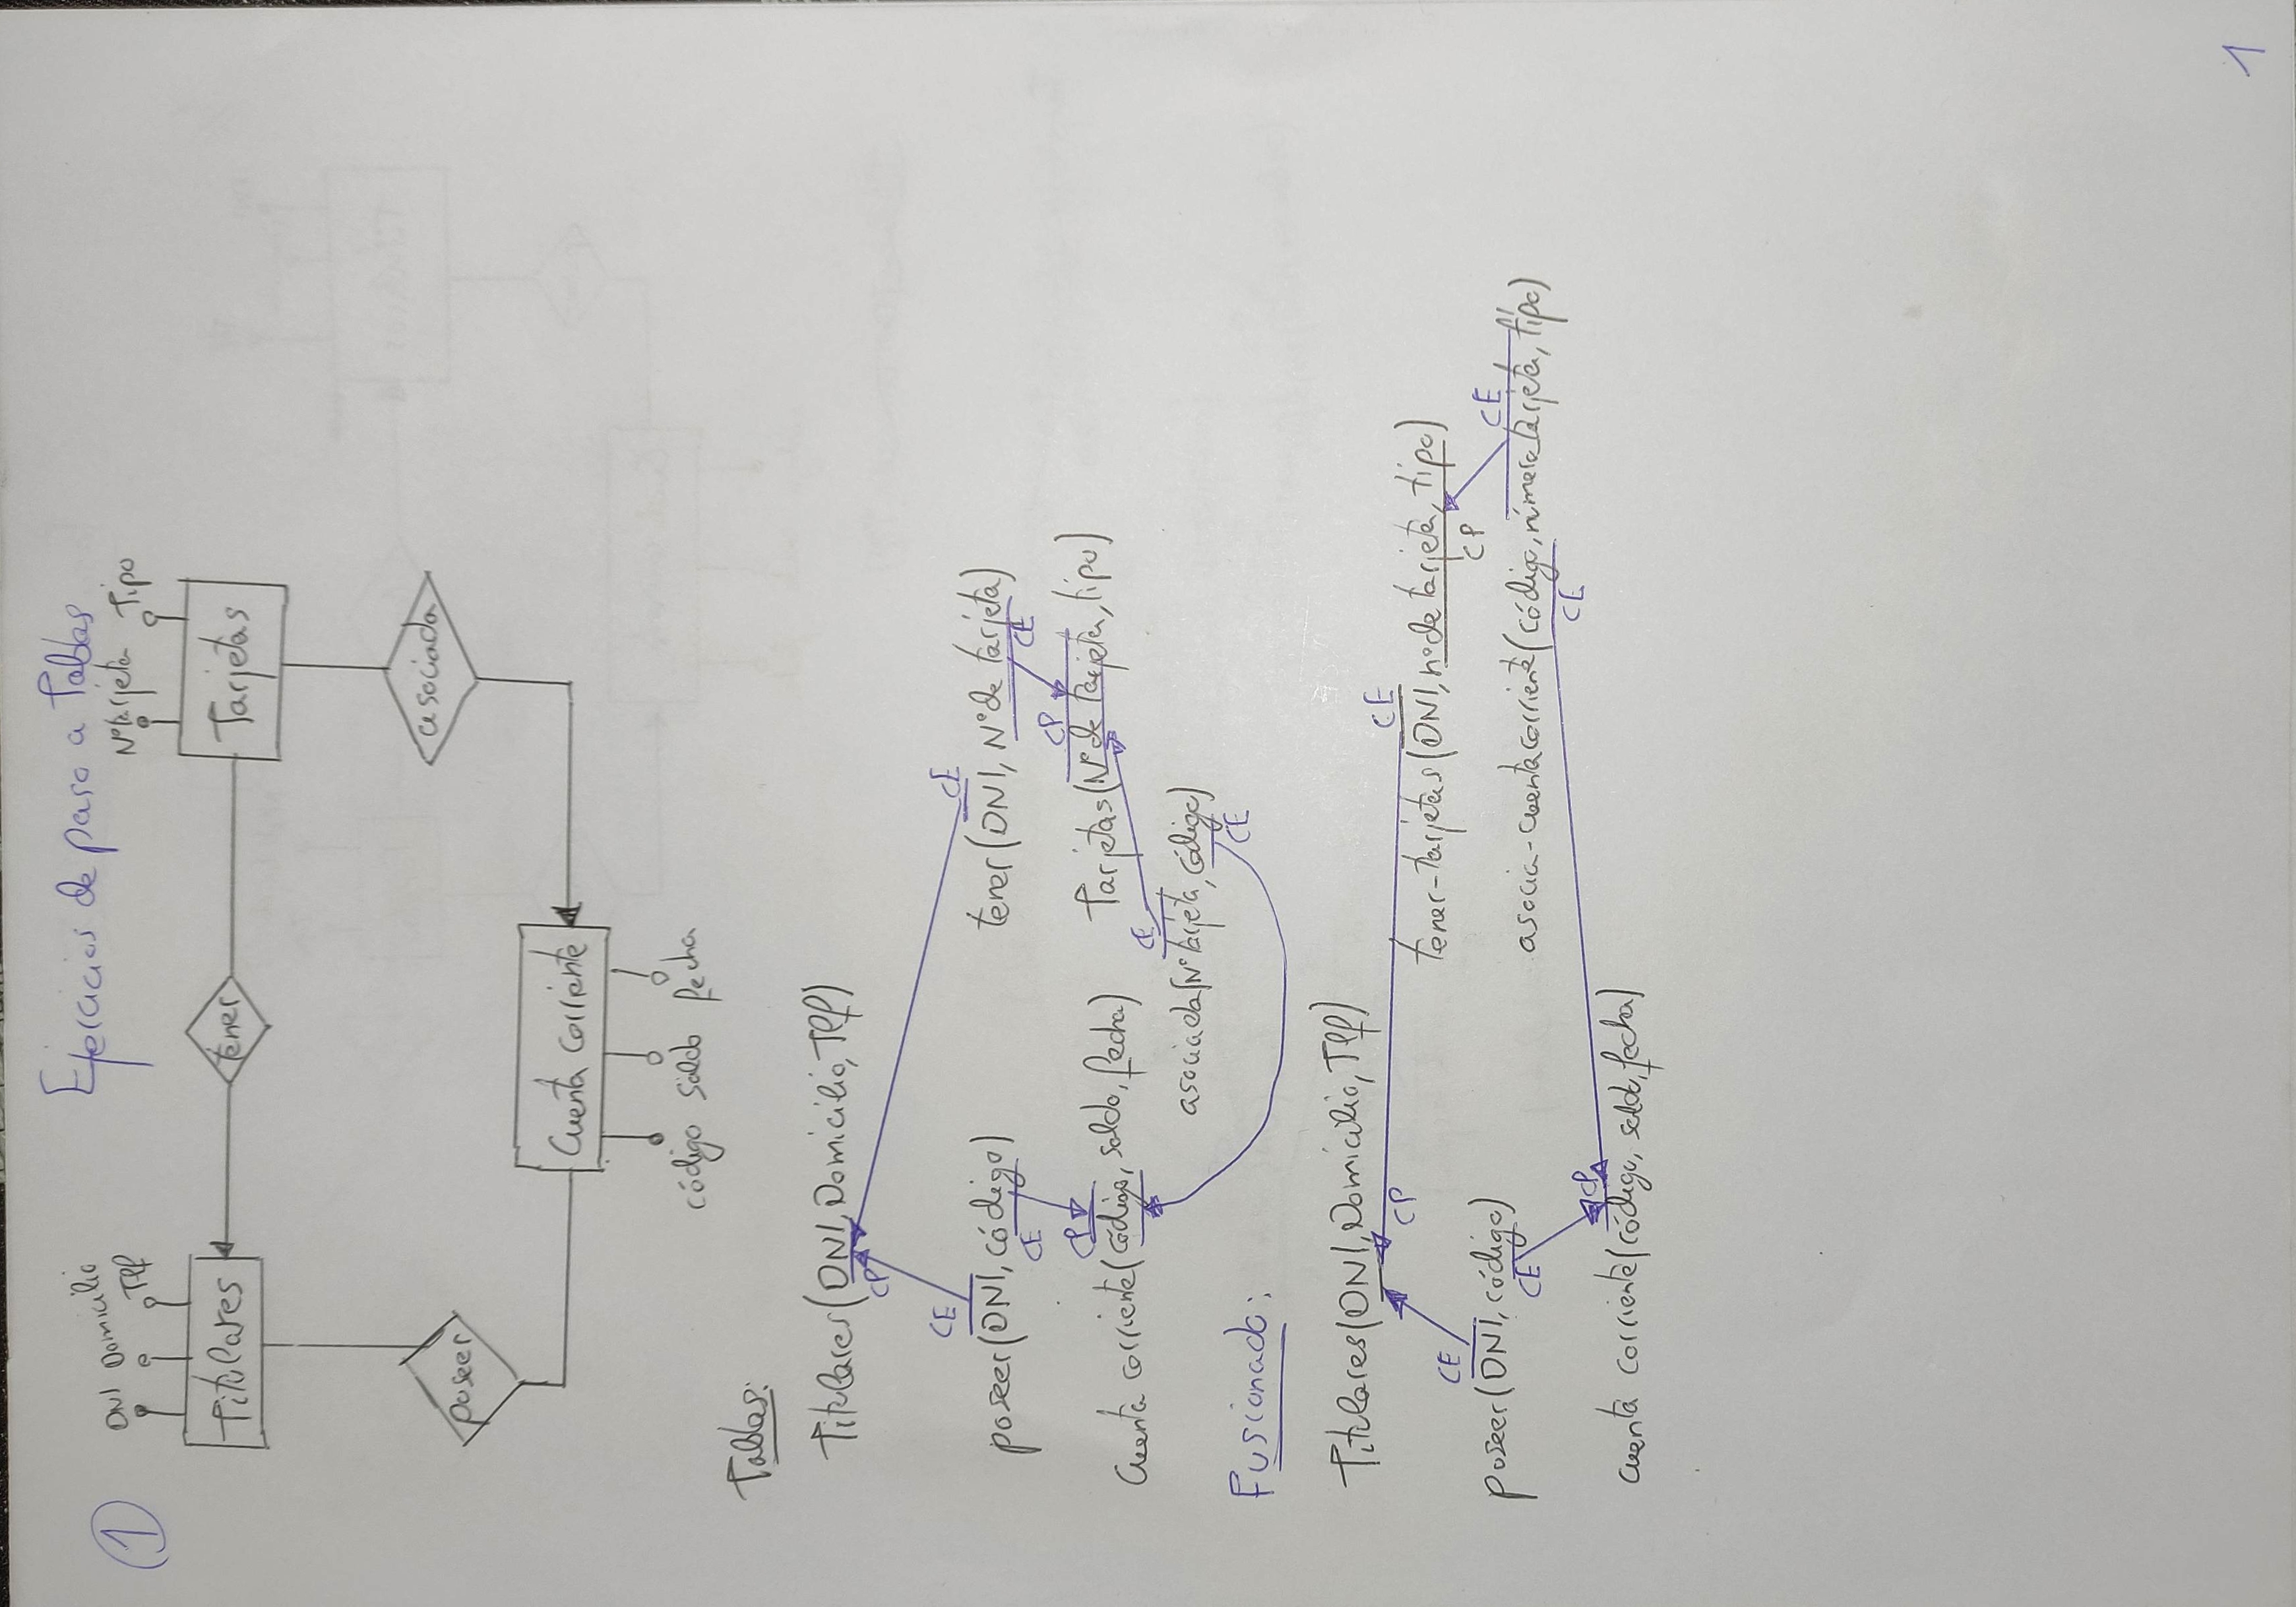 Ejercicios de paso a Tablas
1
DNI Domicilio Tlf
Nºtarjeta Tipo
Titulares tener Tarjetas
poseer asociada
Cuenta corriente
código saldo fecha
Tablas:
Titulares(DNI, Domicilio, Tlf)
CP
CE CE
poseer(DNI, código) tener(DNI, Nºde tarjeta)
CE CE
CP CP
Cuenta corriente(código, saldo, fecha) Tarjetas(Nºde tarjeta, tipo)
CE
asociada(Nº tarjeta, código)
CE
Fusionado:
Titulares(DNI, Domicilio, Tlf)
CP CE
tener-tarjetas(DNI, nºde tarjeta, tipo)
CE CP
poseer(DNI, código) CE
CE asocia-cuenta corriente(código, número tarjeta, tipo)
CP CE
cuenta corriente(código, saldo, fecha)
1